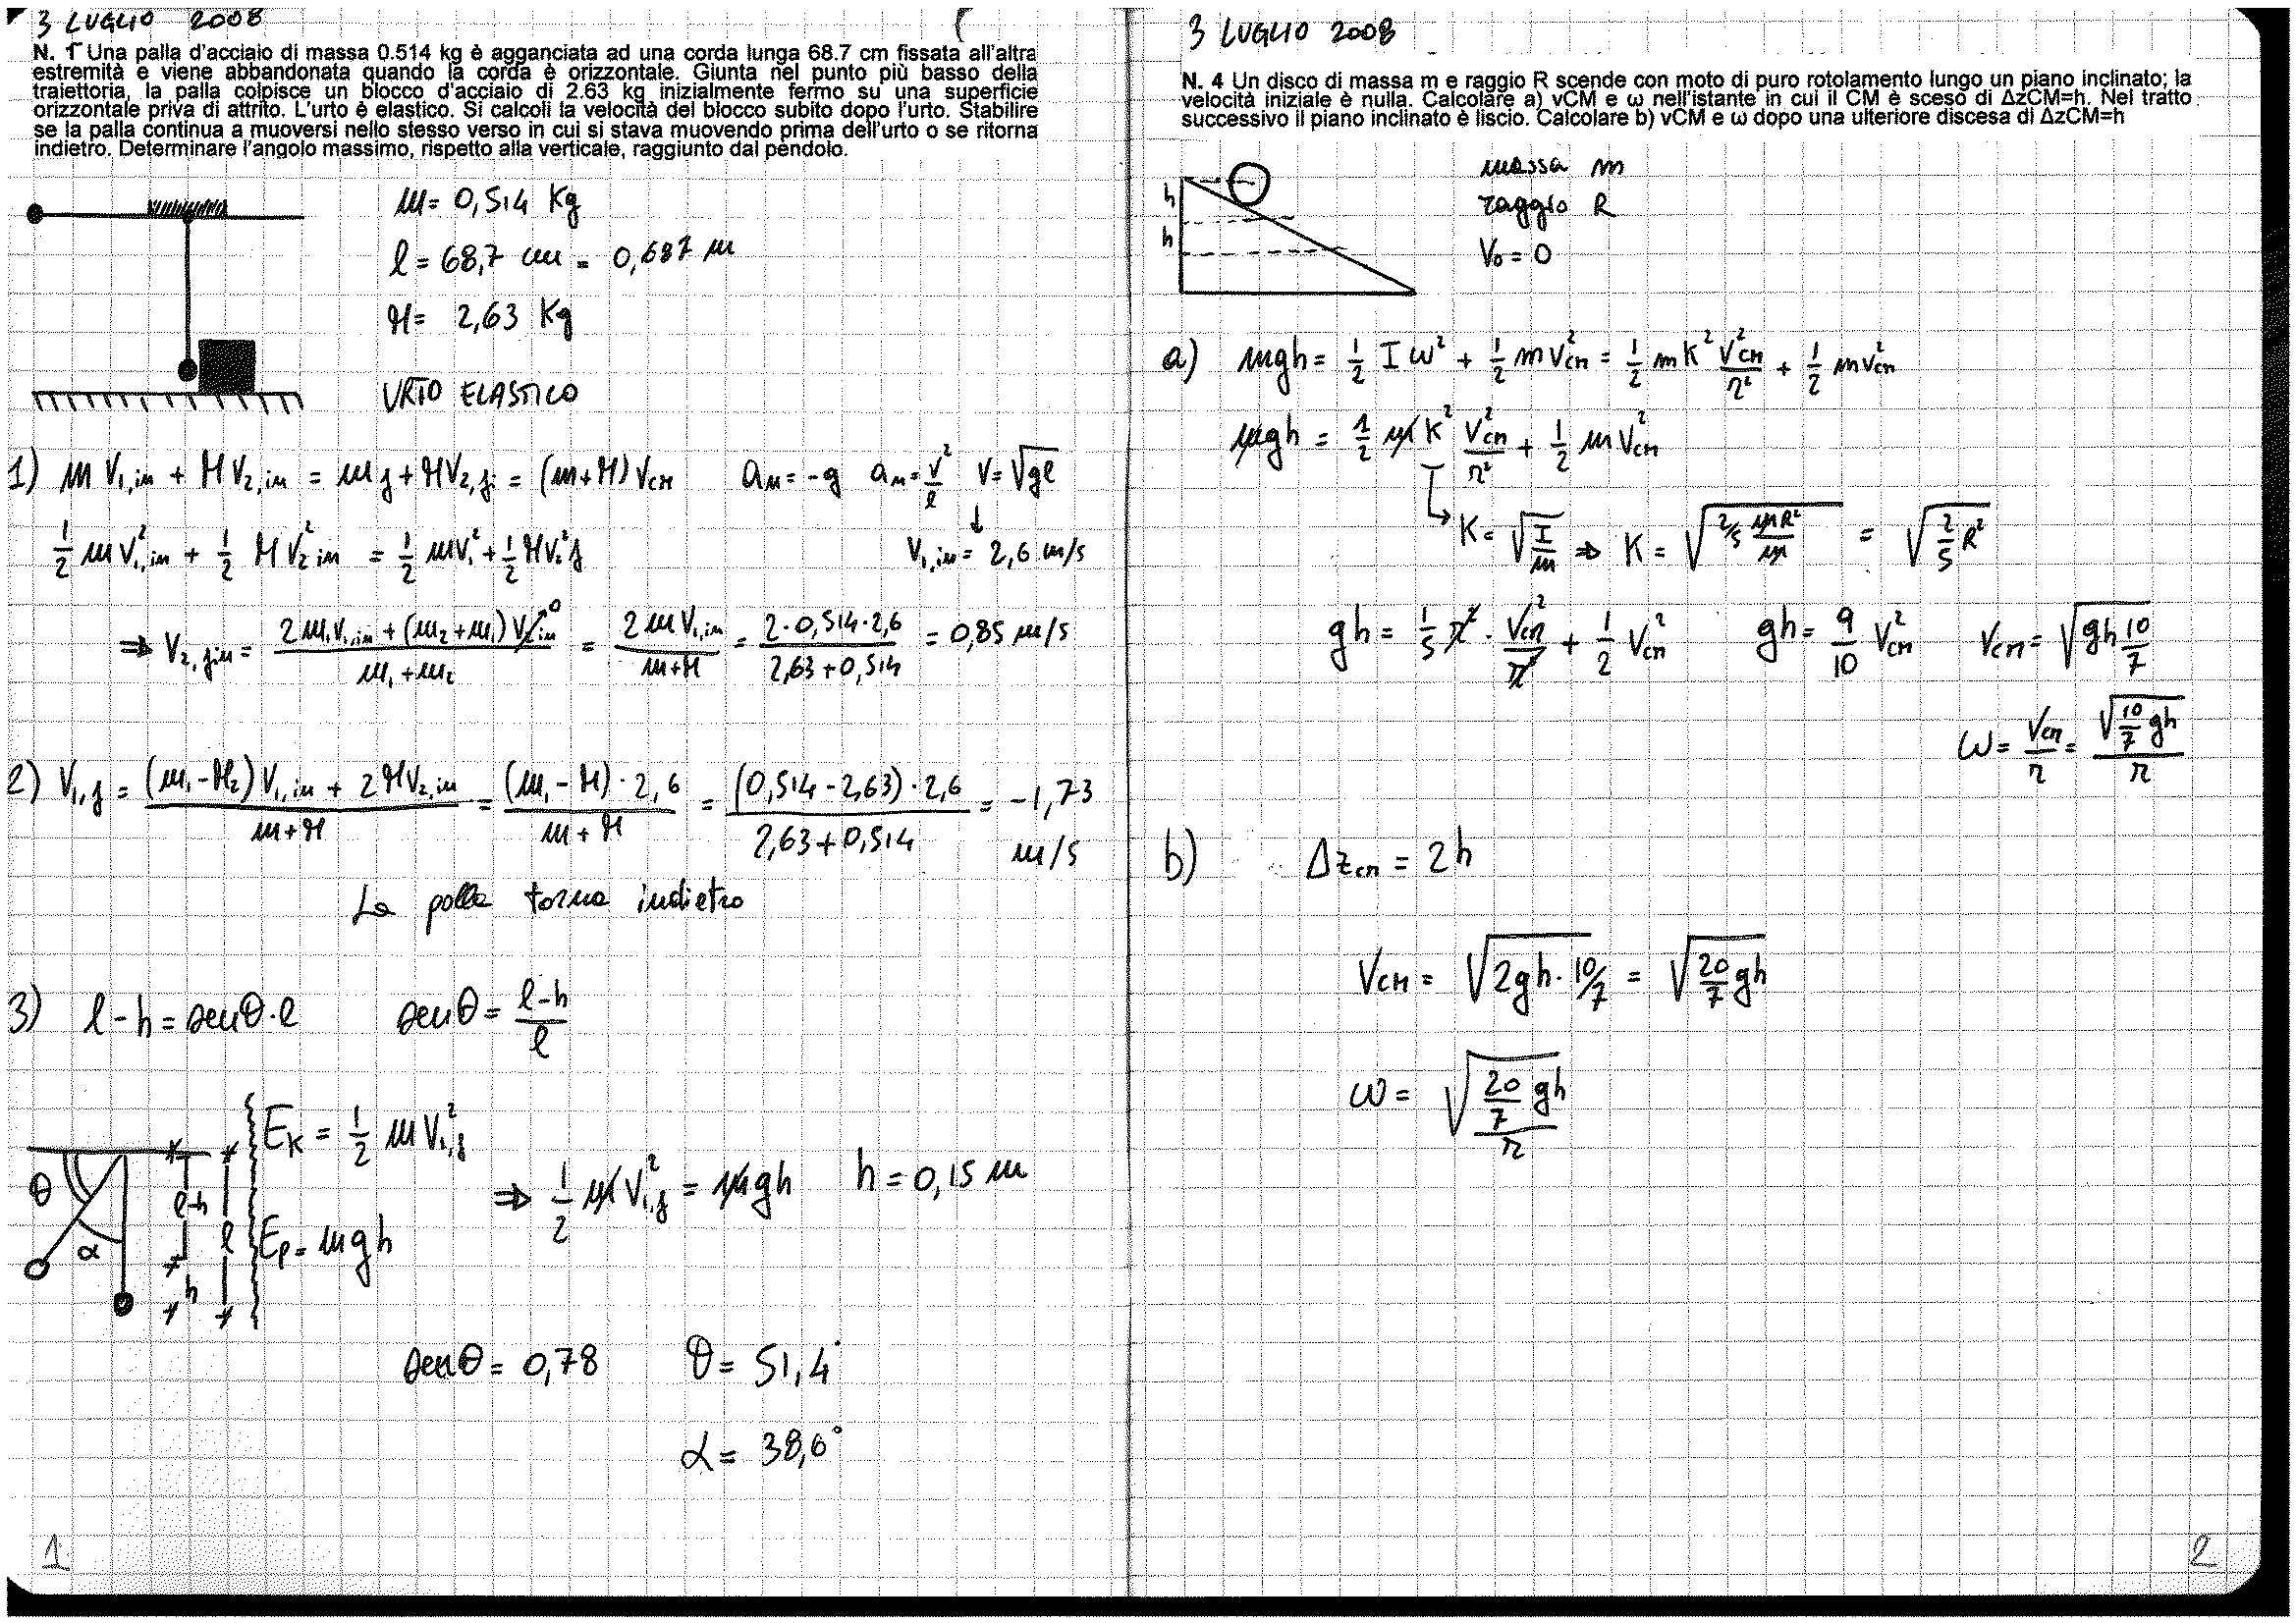 3 LUGLIO 2008
N. 1 Una palla d'acciaio di massa 0.514 kg è agganciata ad una corda lunga 68.7 cm fissata all'altra
estremità e viene abbandonata quando la corda è orizzontale. Giunta nel punto più basso della
traiettoria, la palla colpisce un blocco d'acciaio di 2.63 kg inizialmente fermo su una superficie
orizzontale priva di attrito. L'urto è elastico. Si calcoli la velocità del blocco subito dopo l'urto. Stabilire
se la palla continua a muoversi nello stesso verso in cui si stava muovendo prima dell'urto o se ritorna
indietro. Determinare l'angolo massimo, rispetto alla verticale, raggiunto dal pendolo.
m = 0,514 Kg
l = 68,7 cm = 0,687 m
M = 2,63 Kg
URTO ELASTICO
1) m V₁,in + M V₂,in = m f + M V₂,fi = (m+M) Vcm   an = -g   an = v²/l   V = √gl
↓
½ m V₁²,in + ½ M V₂²in = ½ m V₁² + ½ M V₂²f   V₁,in = 2,6 m/s
⇒ V₂,fin = (2m₁V₁,in + (m₂+m₁) V₂,in→0)/(m₁+m₂) = 2mV₁,in/(m+M) = (2·0,514·2,6)/(2,63+0,514) = 0,85 m/s
2) V₁,f = ((m₁-M₂) V₁,in + 2MV₂,in)/(m+M) = ((m₁-M)·2,6)/(m+M) = ((0,514-2,63)·2,6)/(2,63+0,514) = -1,73
m/s
La palla torna indietro
3) l-h = senθ·l   senθ = (l-h)/l
θ α l-h h l
Ek = ½ m V₁,f²
Ep = mgh
⇒ ½ m V₁,f² = mgh   h = 0,15 m
senθ = 0,78   θ = 51,4°
α = 38,6°
1
3 LUGLIO 2008
N. 4 Un disco di massa m e raggio R scende con moto di puro rotolamento lungo un piano inclinato; la
velocità iniziale è nulla. Calcolare a) vCM e ω nell'istante in cui il CM è sceso di ΔzCM=h. Nel tratto
successivo il piano inclinato è liscio. Calcolare b) vCM e ω dopo una ulteriore discesa di ΔzCM=h
h
h
massa m
raggio R
V₀ = 0
a) mgh = ½ I ω² + ½ m V²cm = ½ m K² V²cm/r² + ½ m v²cm
mgh = ½ m K² V²cm/r² + ½ m V²cm
↳ K = √(I/m) ⇒ K = √(2/5 mR²/m) = √(2/5 R²)
gh = 1/5 r² · Vcm²/r² + ½ V²cm   gh = 9/10 V²cm   Vcm = √(gh 10/7)
ω = Vcm/r = √(10/7 gh)/r
b) Δzcm = 2h
Vcm = √(2gh·10/7) = √(20/7 gh)
ω = √(20/7 gh)/r
2